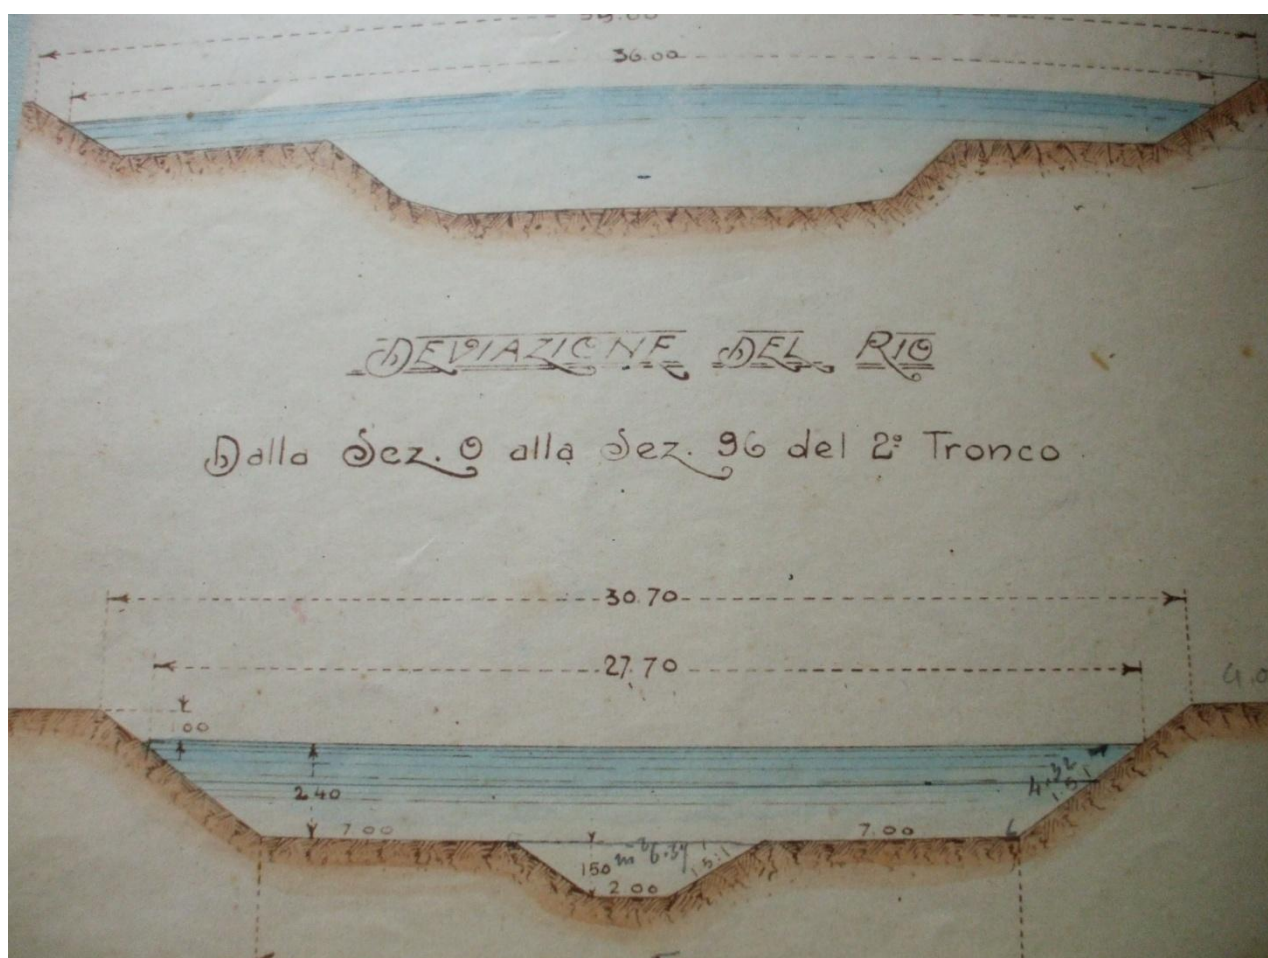 36.00
DEVIAZIONE DEL RIO
Dalla Sez. 0 alla Sez. 96 del 2º Tronco
30.70
27.70
1.00
2.40
7.00
7.00
4.32
1.5:1
150
2.00
1.5:1